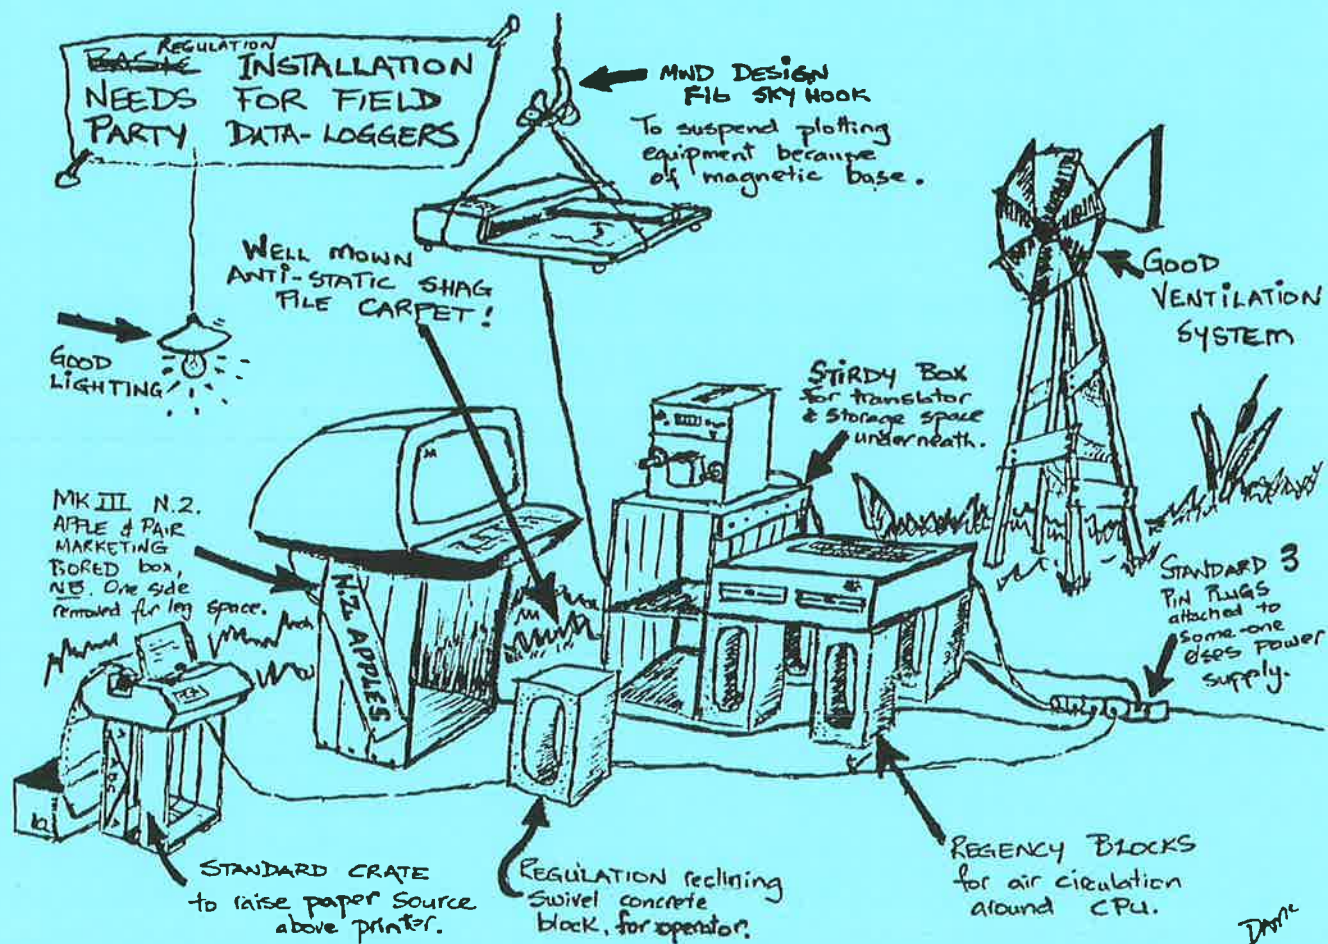 REGULATION
BASIC INSTALLATION
NEEDS FOR FIELD
PARTY DATA-LOGGERS
MWD DESIGN
F16 SKY HOOK
To suspend plotting
equipment because
of magnetic base.
WELL MOWN
ANTI-STATIC SHAG
PILE CARPET!
GOOD
VENTILATION
SYSTEM
GOOD
LIGHTING
STIRDY BOX
for translator
& storage space
underneath.
MK III N.Z.
APPLE & PAIR
MARKETING
BORED box,
NB. One side
removed for leg space.
N.Z. APPLES
STANDARD 3
PIN PLUGS
attached to
some-one
elses power
supply.
STANDARD CRATE
to raise paper source
above printer.
REGULATION reclining
swivel concrete
block, for operator.
REGENCY BLOCKS
for air circulation
around CPU.